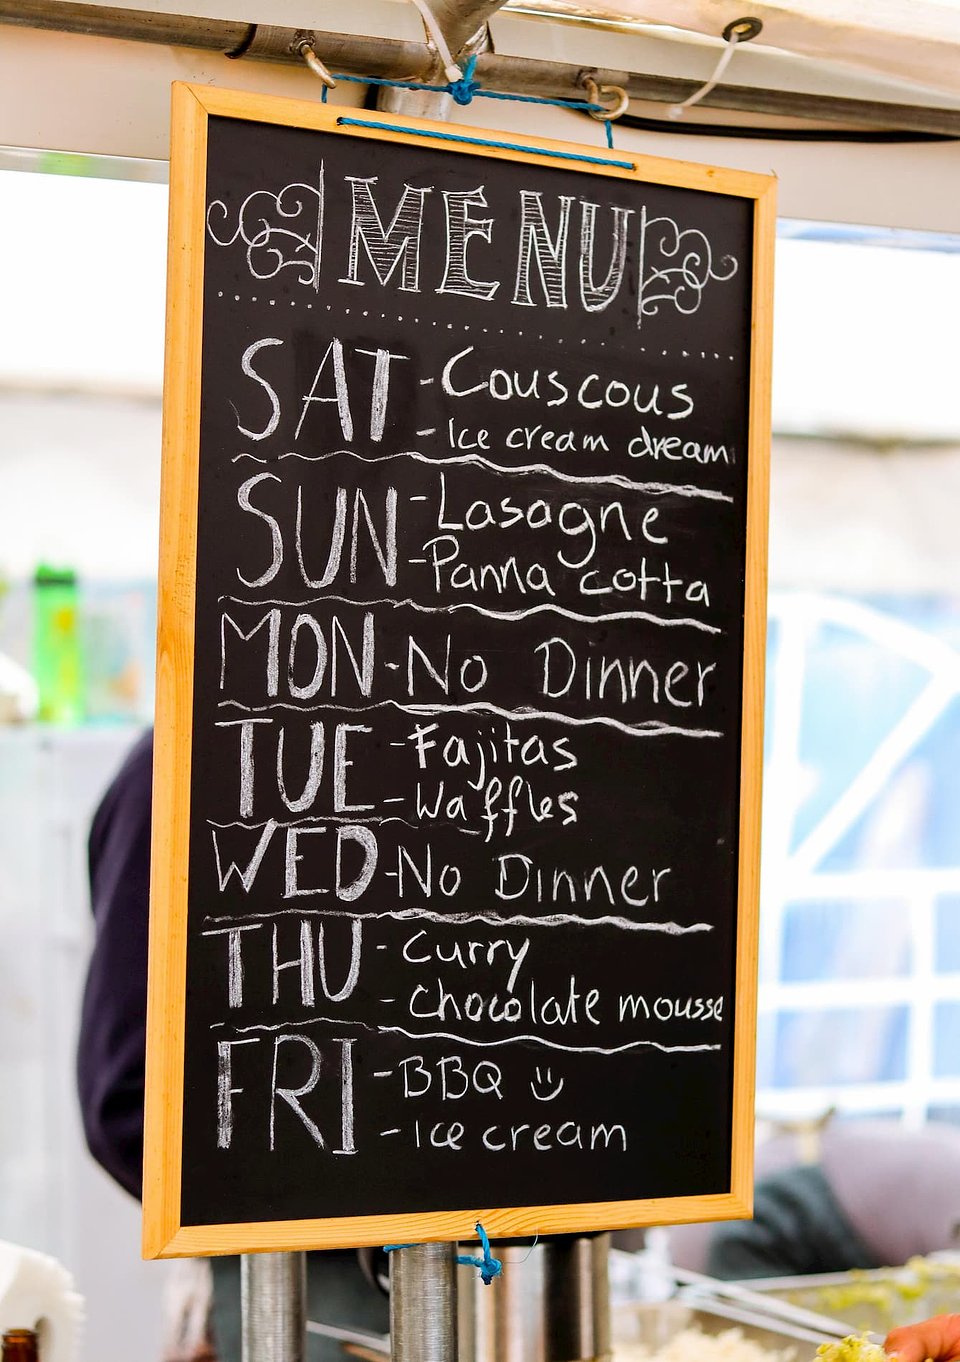 MENU
SAT - Couscous
- Ice cream dream
SUN - Lasagne
- Panna cotta
MON - No Dinner
TUE - Fajitas
- Waffles
WED - No Dinner
THU - Curry
- Chocolate mousse
FRI - BBQ
- Ice cream